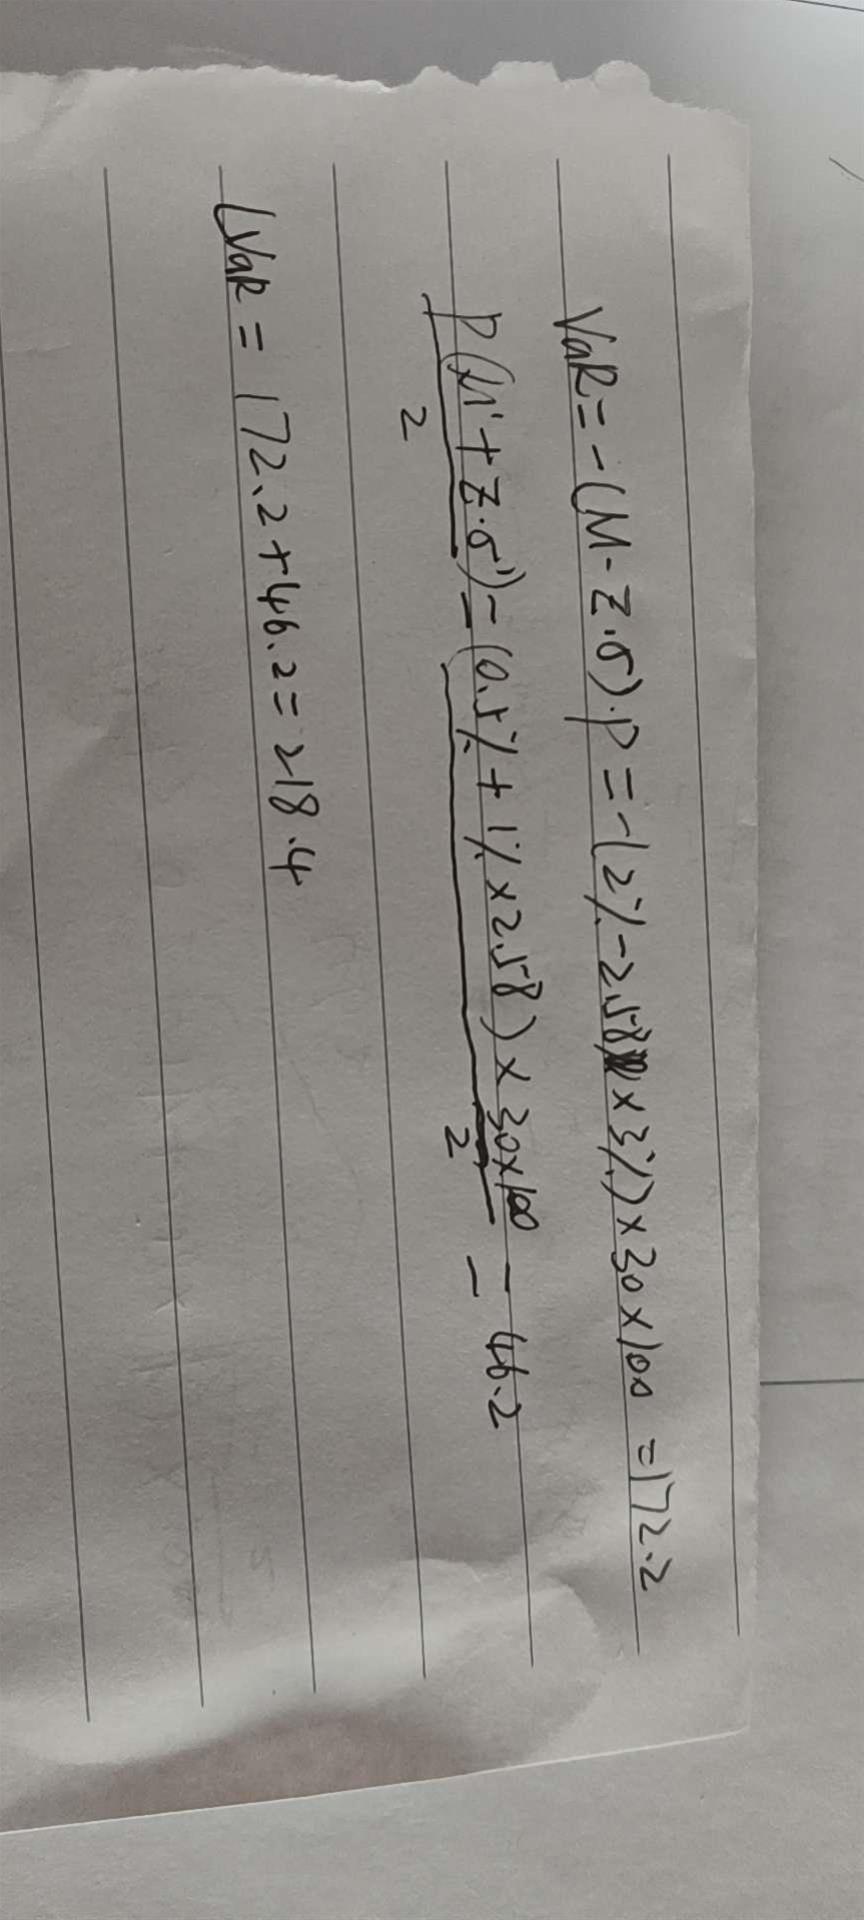 VaR = -(M - Z·σ)·P = -(2% - 2.58 × 3%) × 30 × 100 = 172.2
P(M' + Z·σ')/2 = (0.5% + 1% × 2.58) × 30 × 100/2 = 46.2
LVaR = 172.2 + 46.2 = 218.4